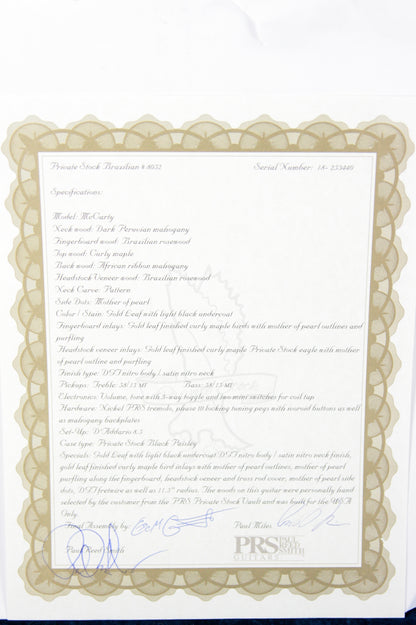 Private Stock Brazilian # 8052 Serial Number: 18- 255440
Specifications:
Model: McCarty
Neck wood: Dark Peruvian mahogany
Fingerboard wood: Brazilian rosewood
Top wood: Curly maple
Back wood: African ribbon mahogany
Headstock Veneer wood: Brazilian rosewood
Neck Carve: Pattern
Side Dots: Mother of pearl
Color / Stain: Gold Leaf with light black undercoat
Fingerboard inlays: Gold leaf finished curly maple birds with mother of pearl outlines and
purfling
Headstock veneer inlays: Gold leaf finished curly maple Private Stock eagle with mother
of pearl outline and purfling
Finish type: DTI nitro body / satin nitro neck
Pickups: Treble: 58/15 MT Bass: 58/15 MT
Electronics: Volume, tone with 3-way toggle and two mini switches for coil tap
Hardware: Nickel PRS tremolo, phase III locking tuning pegs with rosewood buttons as well
as mahogany backplates
Set-Up: D'Addario 8.5
Case type: Private Stock Black Paisley
Specials: Gold Leaf with light black undercoat DTI nitro body / satin nitro neck finish,
gold leaf finished curly maple bird inlays with mother of pearl outlines, mother of pearl
purfling along the fingerboard, headstock veneer and truss rod cover, mother of pearl side
dots, DTI fretwire as well as 11.5" radius. The woods on this guitar were personally hand
selected by the customer from the PRS Private Stock Vault and was built for the USA
Only.
Final Assembly by: Paul Miles
Paul Reed Smith
PRS PAUL REED SMITH
GUITARS